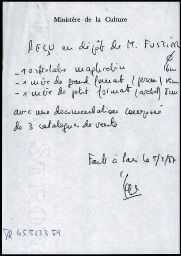 Ministère de la Culture
Reçu en dépôt de M. FUSTIER
- 1 astrolabe maghrébin 16cm
- 1 mère de grand format (persan) 18cm
- 1 mère de petit format (arabe) 8cm
avec une documentation composée
de 3 catalogues de vente
Fait à Paris le 5/2/81
TR 45 523 59